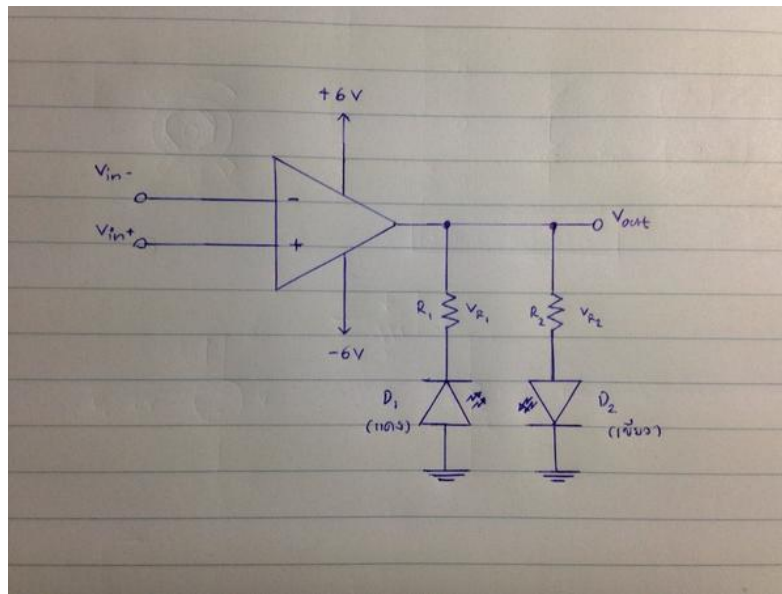 +6V
Vin-
Vin+
-
+
Vout
-6V
R1
VR1
R2
VR2
D1
(แดง)
D2
(เขียว)